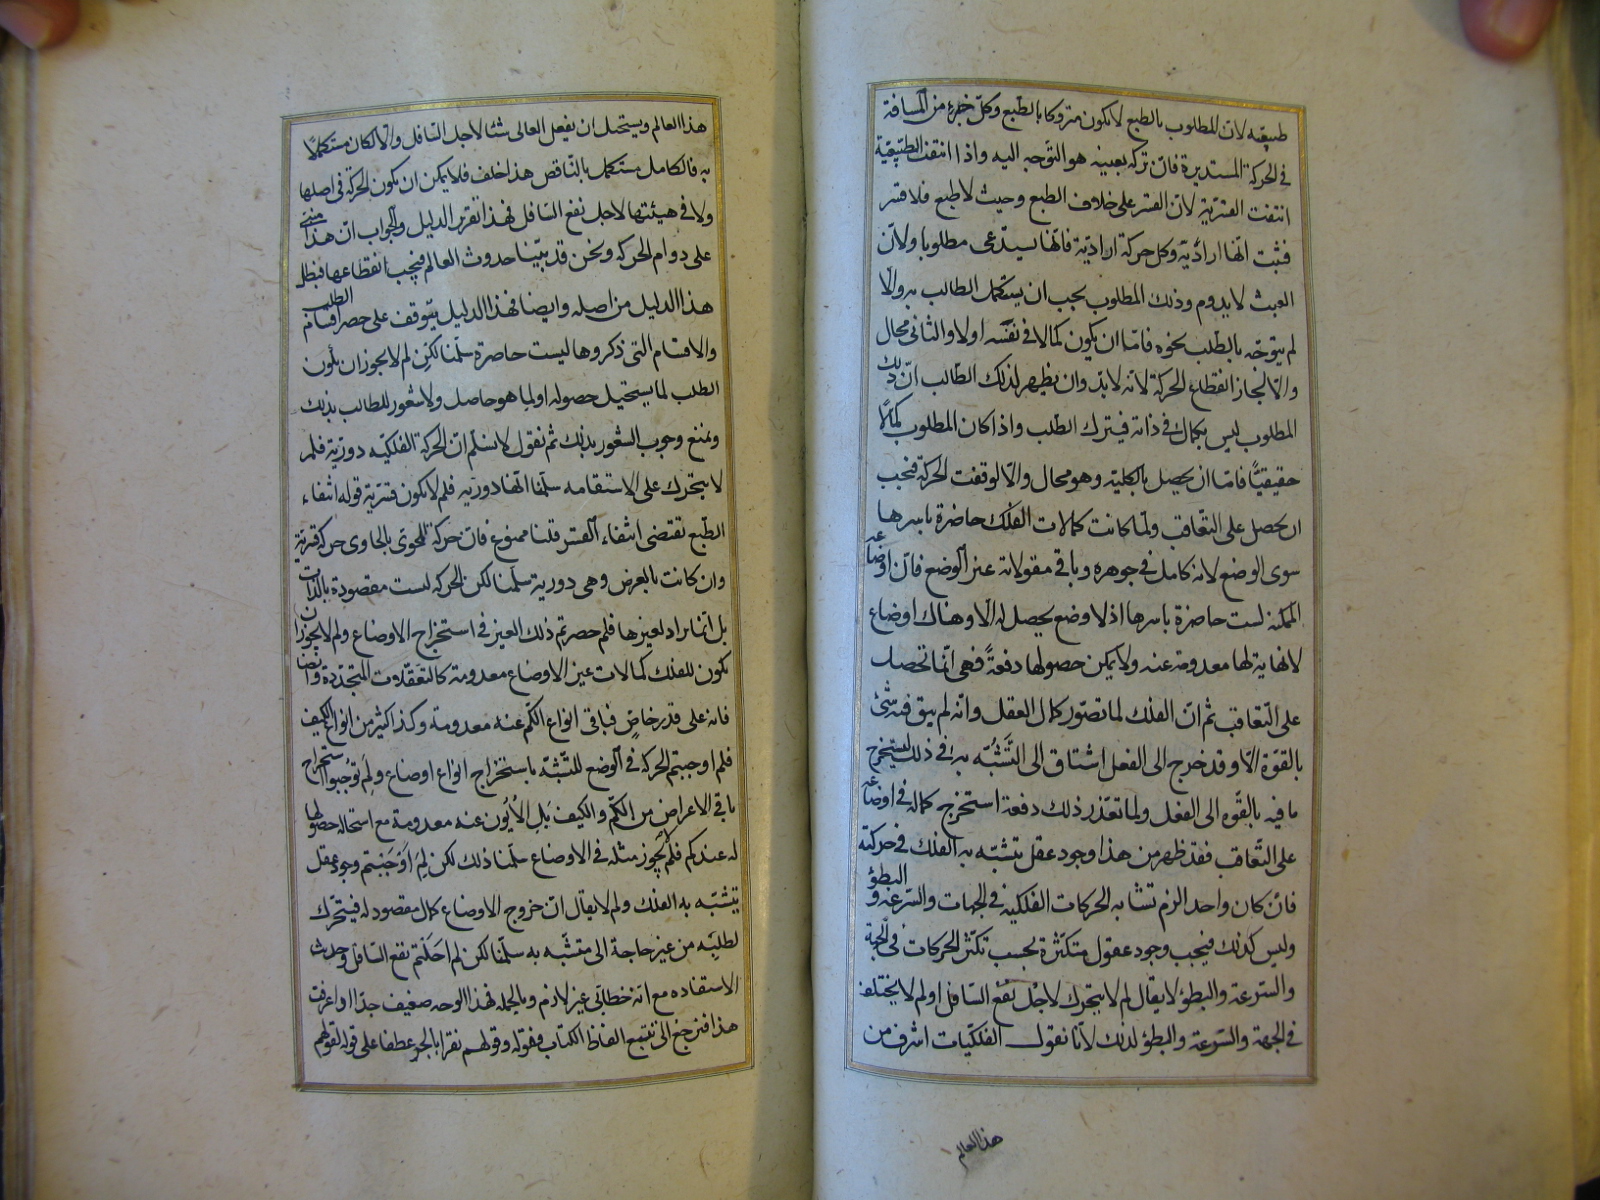 طبيعية لان المطلوب بالطبع لا يكون متروكا بالطبع وكل جزء من المسافة
فى الحركة المستديرة فان تركه بعينه هو التوجه اليه واذا انتفت الطبيعية
انتفت القسرية لان القسر على خلاف الطبع وحيث لا طبع فلا قسر
فثبت انها ارادية وكل حركة ارادية فانها يستدعى مطلوبا ولان
العبث لا يدوم وذلك المطلوب يجب ان يستكمل الطالب به والا
لم يتوجه بالطلب نحوه فاما ان يكون كمالا فى نفسه اولا والثانى محال
والا لجاز انقطاع الحركة لانه لا بد وان يظهر لذلك الطالب ان ذلك
المطلوب ليس بكمال فى ذاته فيترك الطلب واذا كان المطلوب كمالا
حقيقيا فاما ان يحصل بالكلية وهو محال والا لوقفت الحركة فيجب
ان يحصل على التعاقب ولما كانت كمالات الفلك حاضرة باسرها
سوى الوضع لانه كامل فى جوهره وباقى مقولاته غير الوضع فان اوضاعه
الممكنة ليست حاضرة باسرها اذ لا وضع يحصل له الا وهناك اوضاع
لا نهاية لها معدومة عنه ولا يمكن حصولها دفعة فهى انما تحصل
على التعاقب ثم ان الفلك لما تصور كمال العقل وانه لم يبق فيه شئ
بالقوة الا وقد خرج الى الفعل اشتاق الى التشبه به فى ذلك ليستخرج
ما فيه بالقوه الى الفعل ولما تعذر ذلك دفعة استخرج كماله فى اوضاعه
على التعاقب فقد ظهر من هذا وجود عقل يتشبه به الفلك فى حركته
فان كان واحدا لزم تشابه الحركات الفلكيه فى الجهات والسرعة و البطؤ
وليس كذلك فيجب وجود عقول متكثرة بحسب تكثر الحركات فى الجهة
والسرعة والبطؤ لا يقال لم لا يتحرك لاجل نفع السافل او لم لا يختلف
فى الجهة والسرعة والبطؤ لذلك لانا نقول الفلكيات اشرف من
هذا العالم
هذا العالم ويستحيل ان يفعل العالى شئا لاجل السافل والا لكان مستكملا
به فالكامل مستكمل بالناقص هذا خلف فلا يمكن ان يكون الحركة فى اصلها
ولا فى هيئتها لاجل نفع السافل فهذا تقرير الدليل والجواب ان هذا مبنى
على دوام الحركه ونحن قد بينا حدوث العالم فيجب انقطاعها فبطل
هذا الدليل من اصله وايضا فهذا الدليل يتوقف على حصر اقسام الطلب
والاقسام التى ذكروها ليست حاصرة سلمنا لكن لم لا يجوز ان يكون
الطلب لما يستحيل حصوله او لما هو حاصل ولا شعور للطالب بذلك
ونمنع وجوب الشعور بذلك ثم نقول لا نسلم ان الحركة الفلكيه دورية فلم
لا يتحرك على الاستقامه سلمنا انها دوريه فلم لا يكون قسرية قوله انتفاء
الطبع يقتضى انتفاء القسر قلنا ممنوع فان حركة المحوى بالحاوى حركه قسرية
وان كانت بالعرض وهى دورية سلمنا لكن الحركه ليست مقصودة بالذات
بل انما يراد لغيرها فلم حصرتم ذلك الغير فى استخراج الاوضاع ولم لا يجوز ان
يكون للفلك كمالات غير الاوضاع معدومة كالتعقلات المتجددة وايضا
فانه على قدر خاص فباقى انواع الكم عنه معدومة وكذا كثير من انواع الكيف
فلم اوجبتم الحركة فى الوضع للتشبه باستخراج انواع اوضاع ولم توجبوا استخراج
باقى الاعراض من الكم والكيف بل الايون عنه معدومة مع استحالة حصولها
له عندكم فلم لا يجوز مثله فى الاوضاع سلمنا ذلك لكن لم اوجبتم وجود عقل
يتشبه به الفلك ولم لا يقال ان خروج الاوضاع كمال مقصود له فيتحرك
لطلبه من غير حاجة الى متشبه به سلمنا لكن لم احلتم نفع السافل وحديث
الاستفاده مع انه خطابى غير لازم وبالجمله فهذا الوجه ضعيف جدا اذا عرفت
هذا فنرجع الى تتبع الفاظ الكتاب فقوله وقولهم نقرا بالجر عطفا على قوله لقولهم